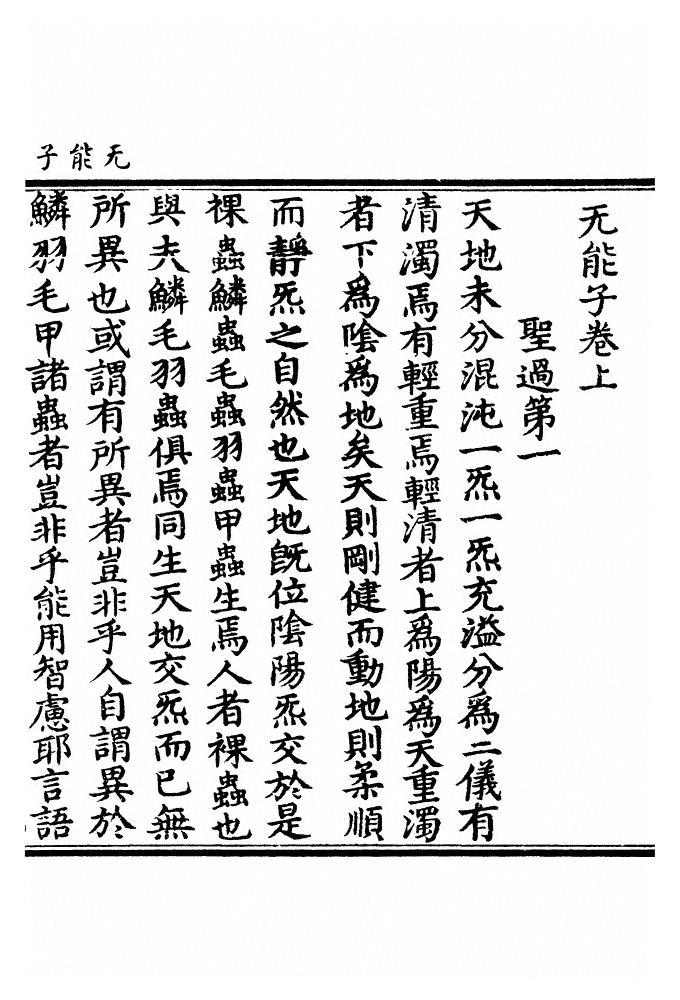 无能子
无能子卷上
聖過第一
天地未分混沌一炁一炁充溢分爲二儀有
清濁焉有輕重焉輕清者上爲陽爲天重濁
者下爲陰爲地矣天則剛健而動地則柔順
而靜炁之自然也天地既位陰陽炁交於是
裸蟲鱗蟲毛蟲羽蟲甲蟲生焉人者裸蟲也
與夫鱗毛羽蟲俱焉同生天地交炁而已無
所異也或謂有所異者豈非乎人自謂異於
鱗羽毛甲諸蟲者豈非乎能用智慮耶言語